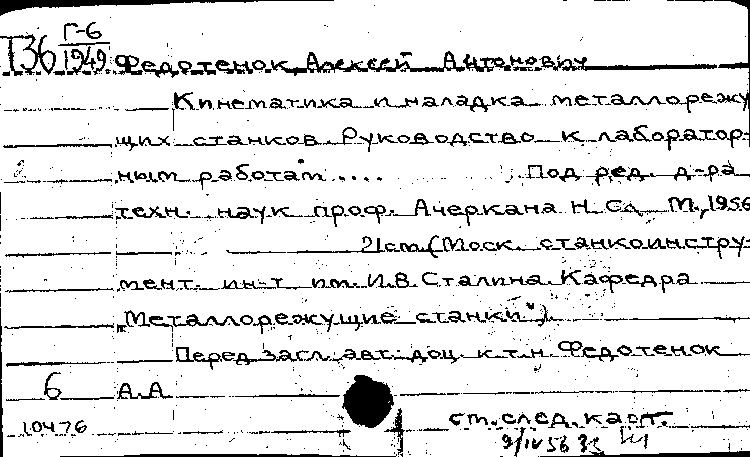 Т36 Г-6
1949 Федотенок, Алексей Антонович
Кинематика и наладка металлорежу
щих станков. Руководство к лаборатор-
ным работам .... Под ред. д-ра
техн. наук проф. Ачеркана Н. С., М., 1956
21 cm. (Моск. станкоинстру-
мент. ин-т им. И.В. Сталина. Кафедра
„Металлорежущие станки").
Перед загл. авт.: доц. к.т.н. Федотенок
6 А.А
10476 ст. след. карт.
9/IV 56